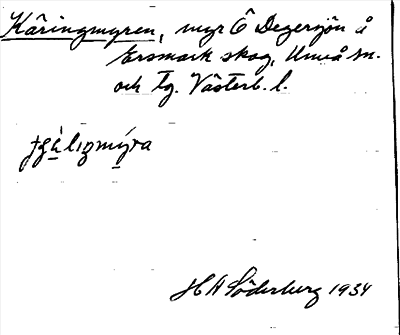 Käringmyren, myr Ö Degersjön å
Ersmark skog, Umeå sn.
och tg. Västerb. l.
H A Söderberg 1934